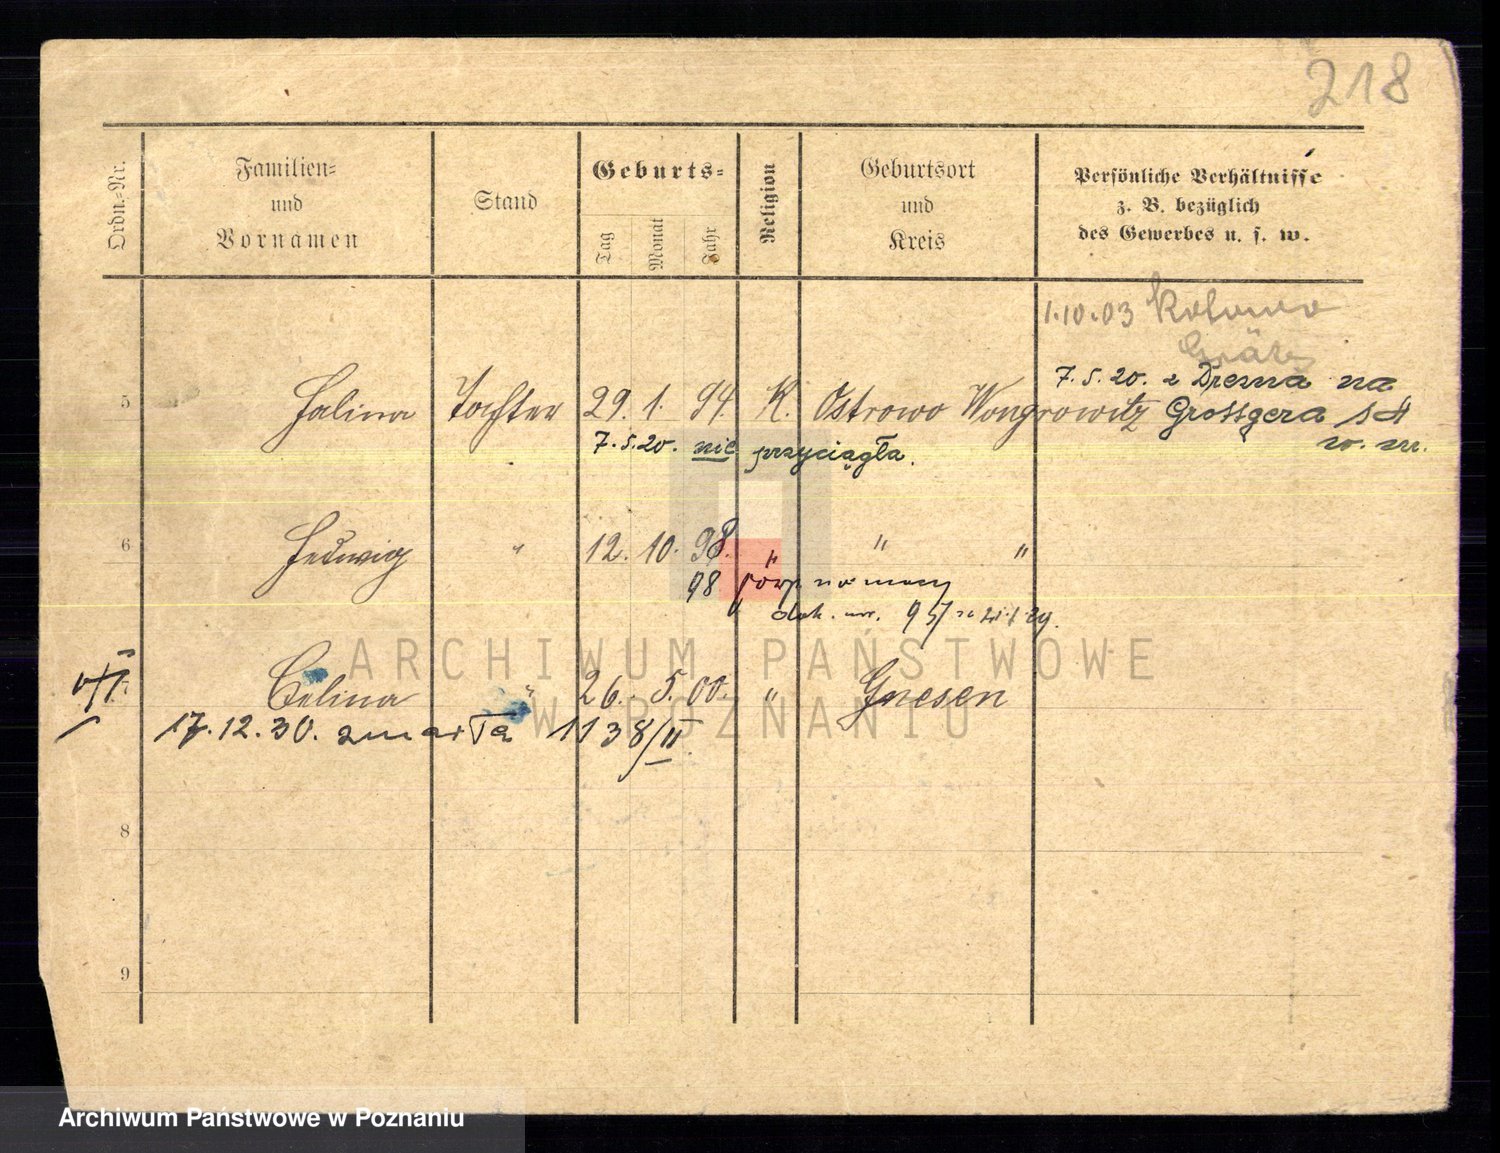 218
Ordn.-Nr.
Familien-
und
Vornamen
Stand
Geburts-
Tag
Monat
Jahr
Religion
Geburtsort
und
Kreis
Persönliche Verhältnisse
z. B. bezüglich
des Gewerbes u. s. w.
1.10.03
Grätz
7.5.20. z Drezna na
5 Halina Tochter 29. 1. 94. K. Ostrowo Wongrowitz Grottgera
7.5.20. nie przyciągła.
6 Hedwig " 12. 10. 98. " " "
98
dok. nr.
7 Celina " 26. 5. 00. " Gnesen
17.12.30. zmarła 1138/II
8
9
ARCHIWUM PAŃSTWOWE
W POZNANIU
Archiwum Państwowe w Poznaniu